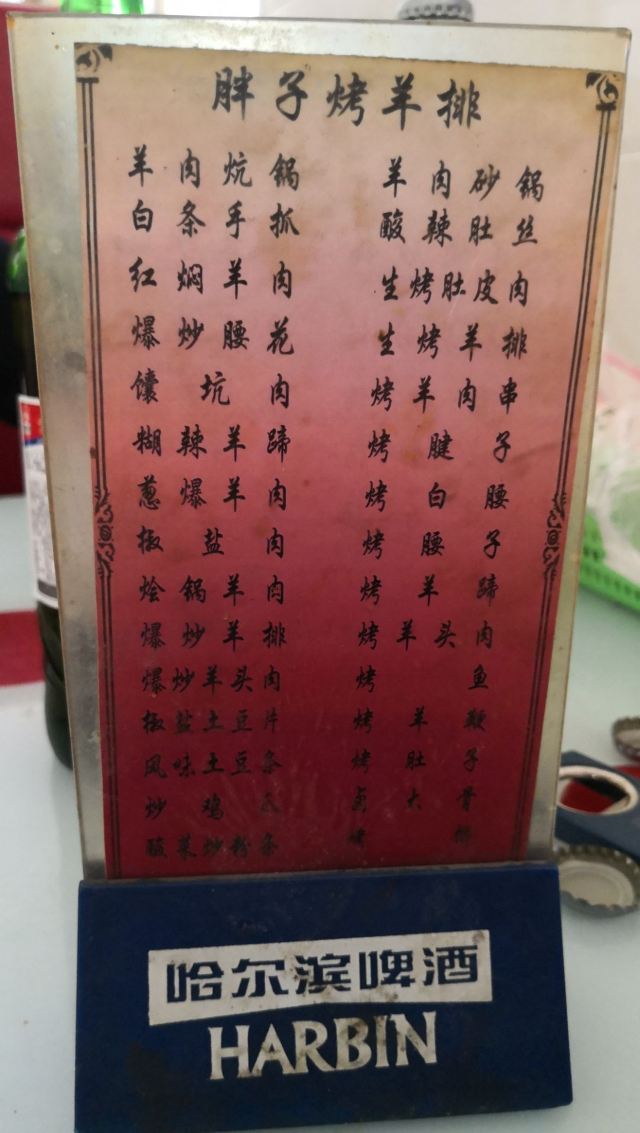 胖子烤羊排
羊肉炕锅
白条手抓
红焖羊肉
爆炒腰花
馕坑肉
糊辣羊蹄
葱爆羊肉
椒盐肉
烩锅羊肉
爆炒羊排
爆炒羊头肉
椒盐土豆片
风味土豆条
炒鸡
酸菜炒粉条
羊肉砂锅
酸辣肚丝
生烤肚皮肉
生烤羊排
烤羊肉串
烤腱子
烤白腰
烤腰子
烤羊蹄
烤羊头肉
烤鱼
烤羊鞭
烤肚子
卤大骨
烤
哈尔滨啤酒
HARBIN